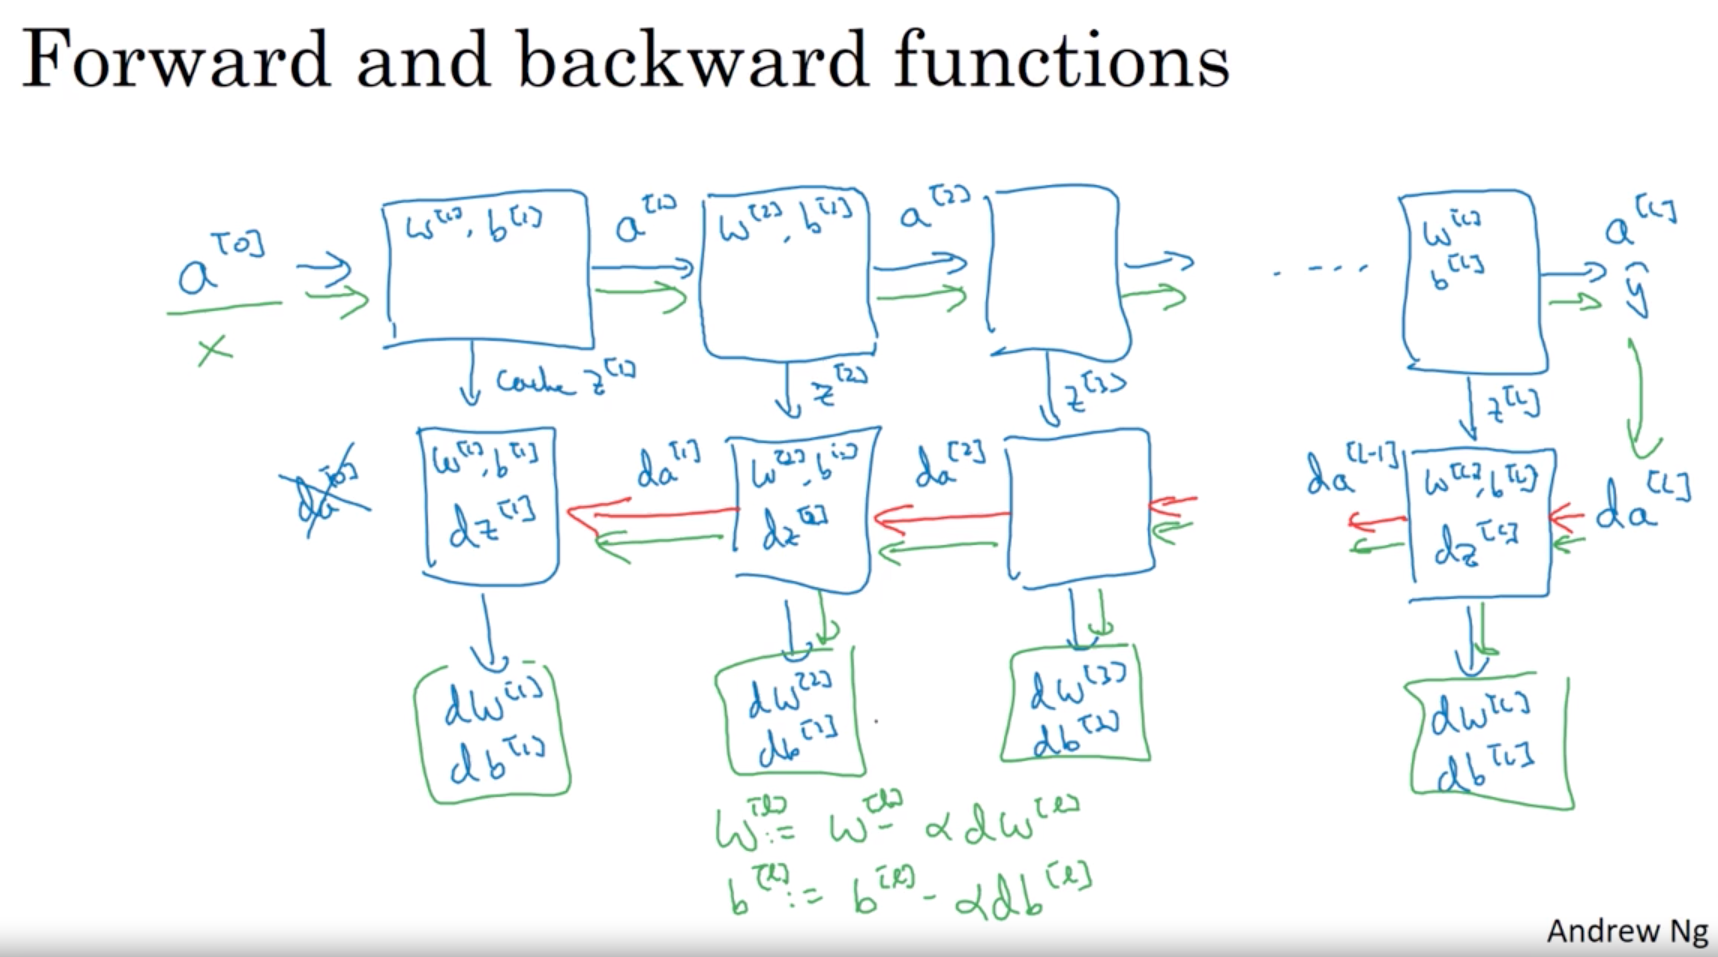 Forward and backward functions
a^[0]
x
w^[1], b^[1]
a^[1]
w^[2], b^[2]
a^[2]
....
w^[L]
b^[L]
a^[L]
ŷ
cache z^[1]
z^[2]
z^[3]
z^[L]
da^[0]
w^[1], b^[1]
dz^[1]
da^[1]
w^[2], b^[2]
dz^[2]
da^[2]
da^[L-1]
w^[L], b^[L]
dz^[L]
da^[L]
dw^[1]
db^[1]
dw^[2]
db^[2]
dw^[3]
db^[3]
dw^[L]
db^[L]
W^[l] := W^[l] - αdw^[l]
b^[l] := b^[l] - αdb^[l]
Andrew Ng